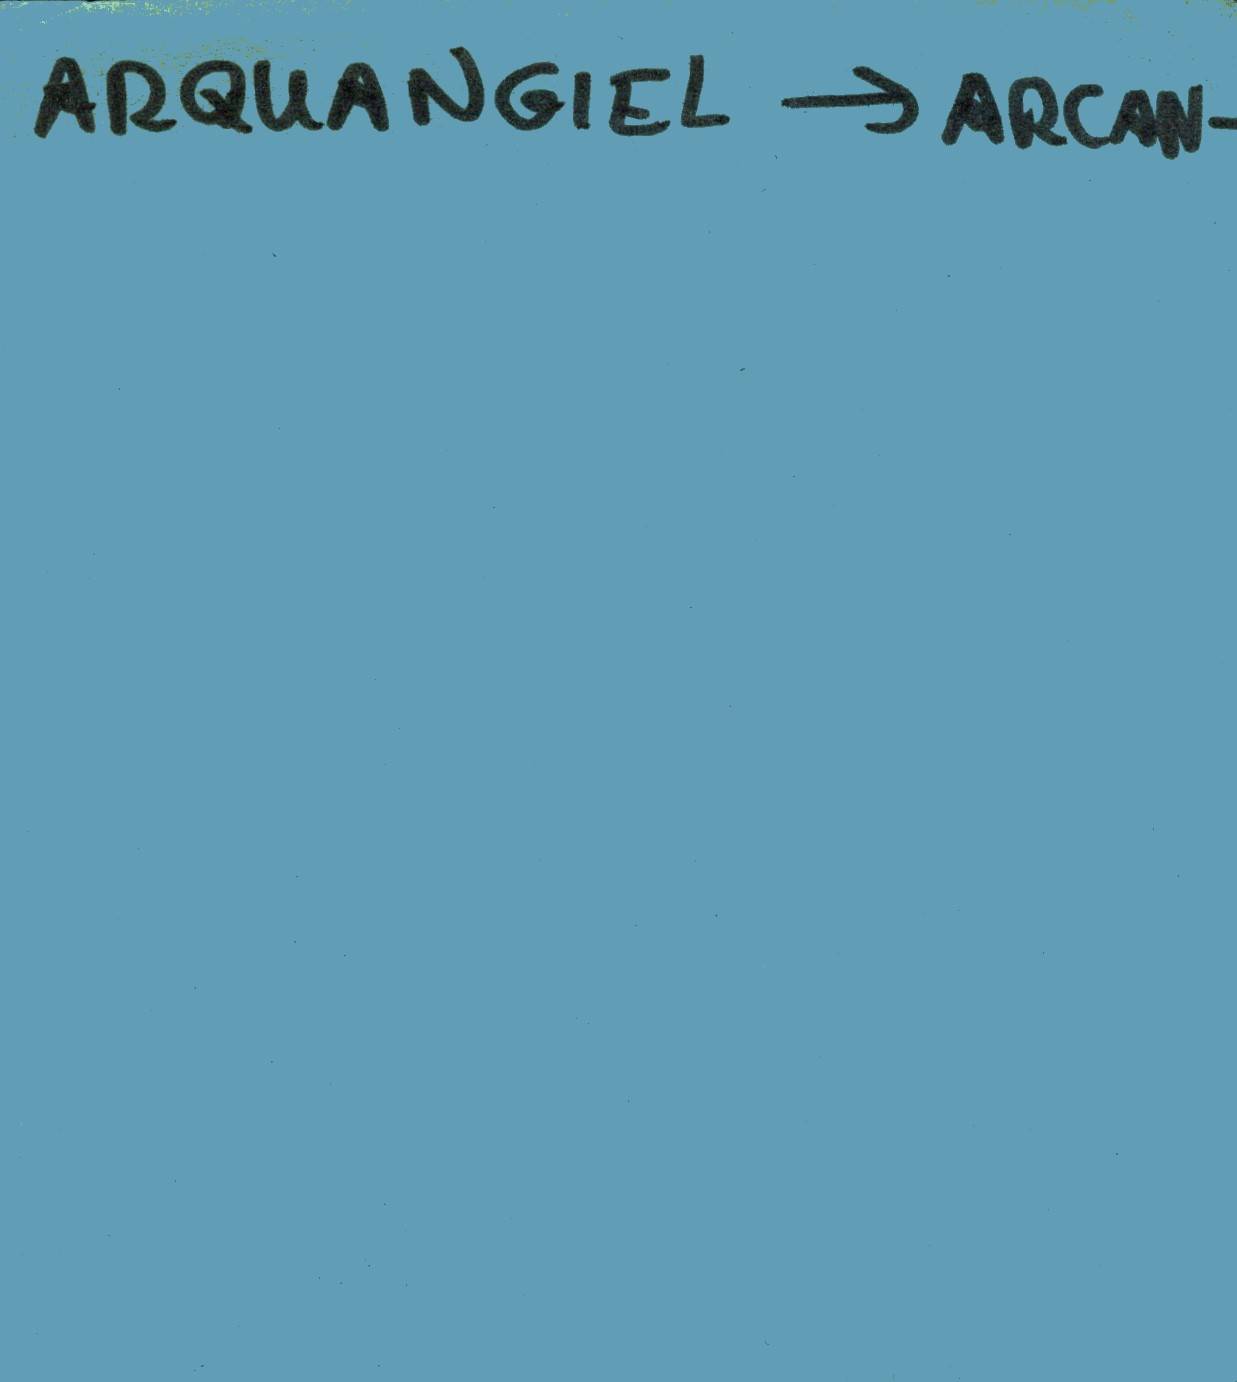 ARQUANGIEL → ARCAN-